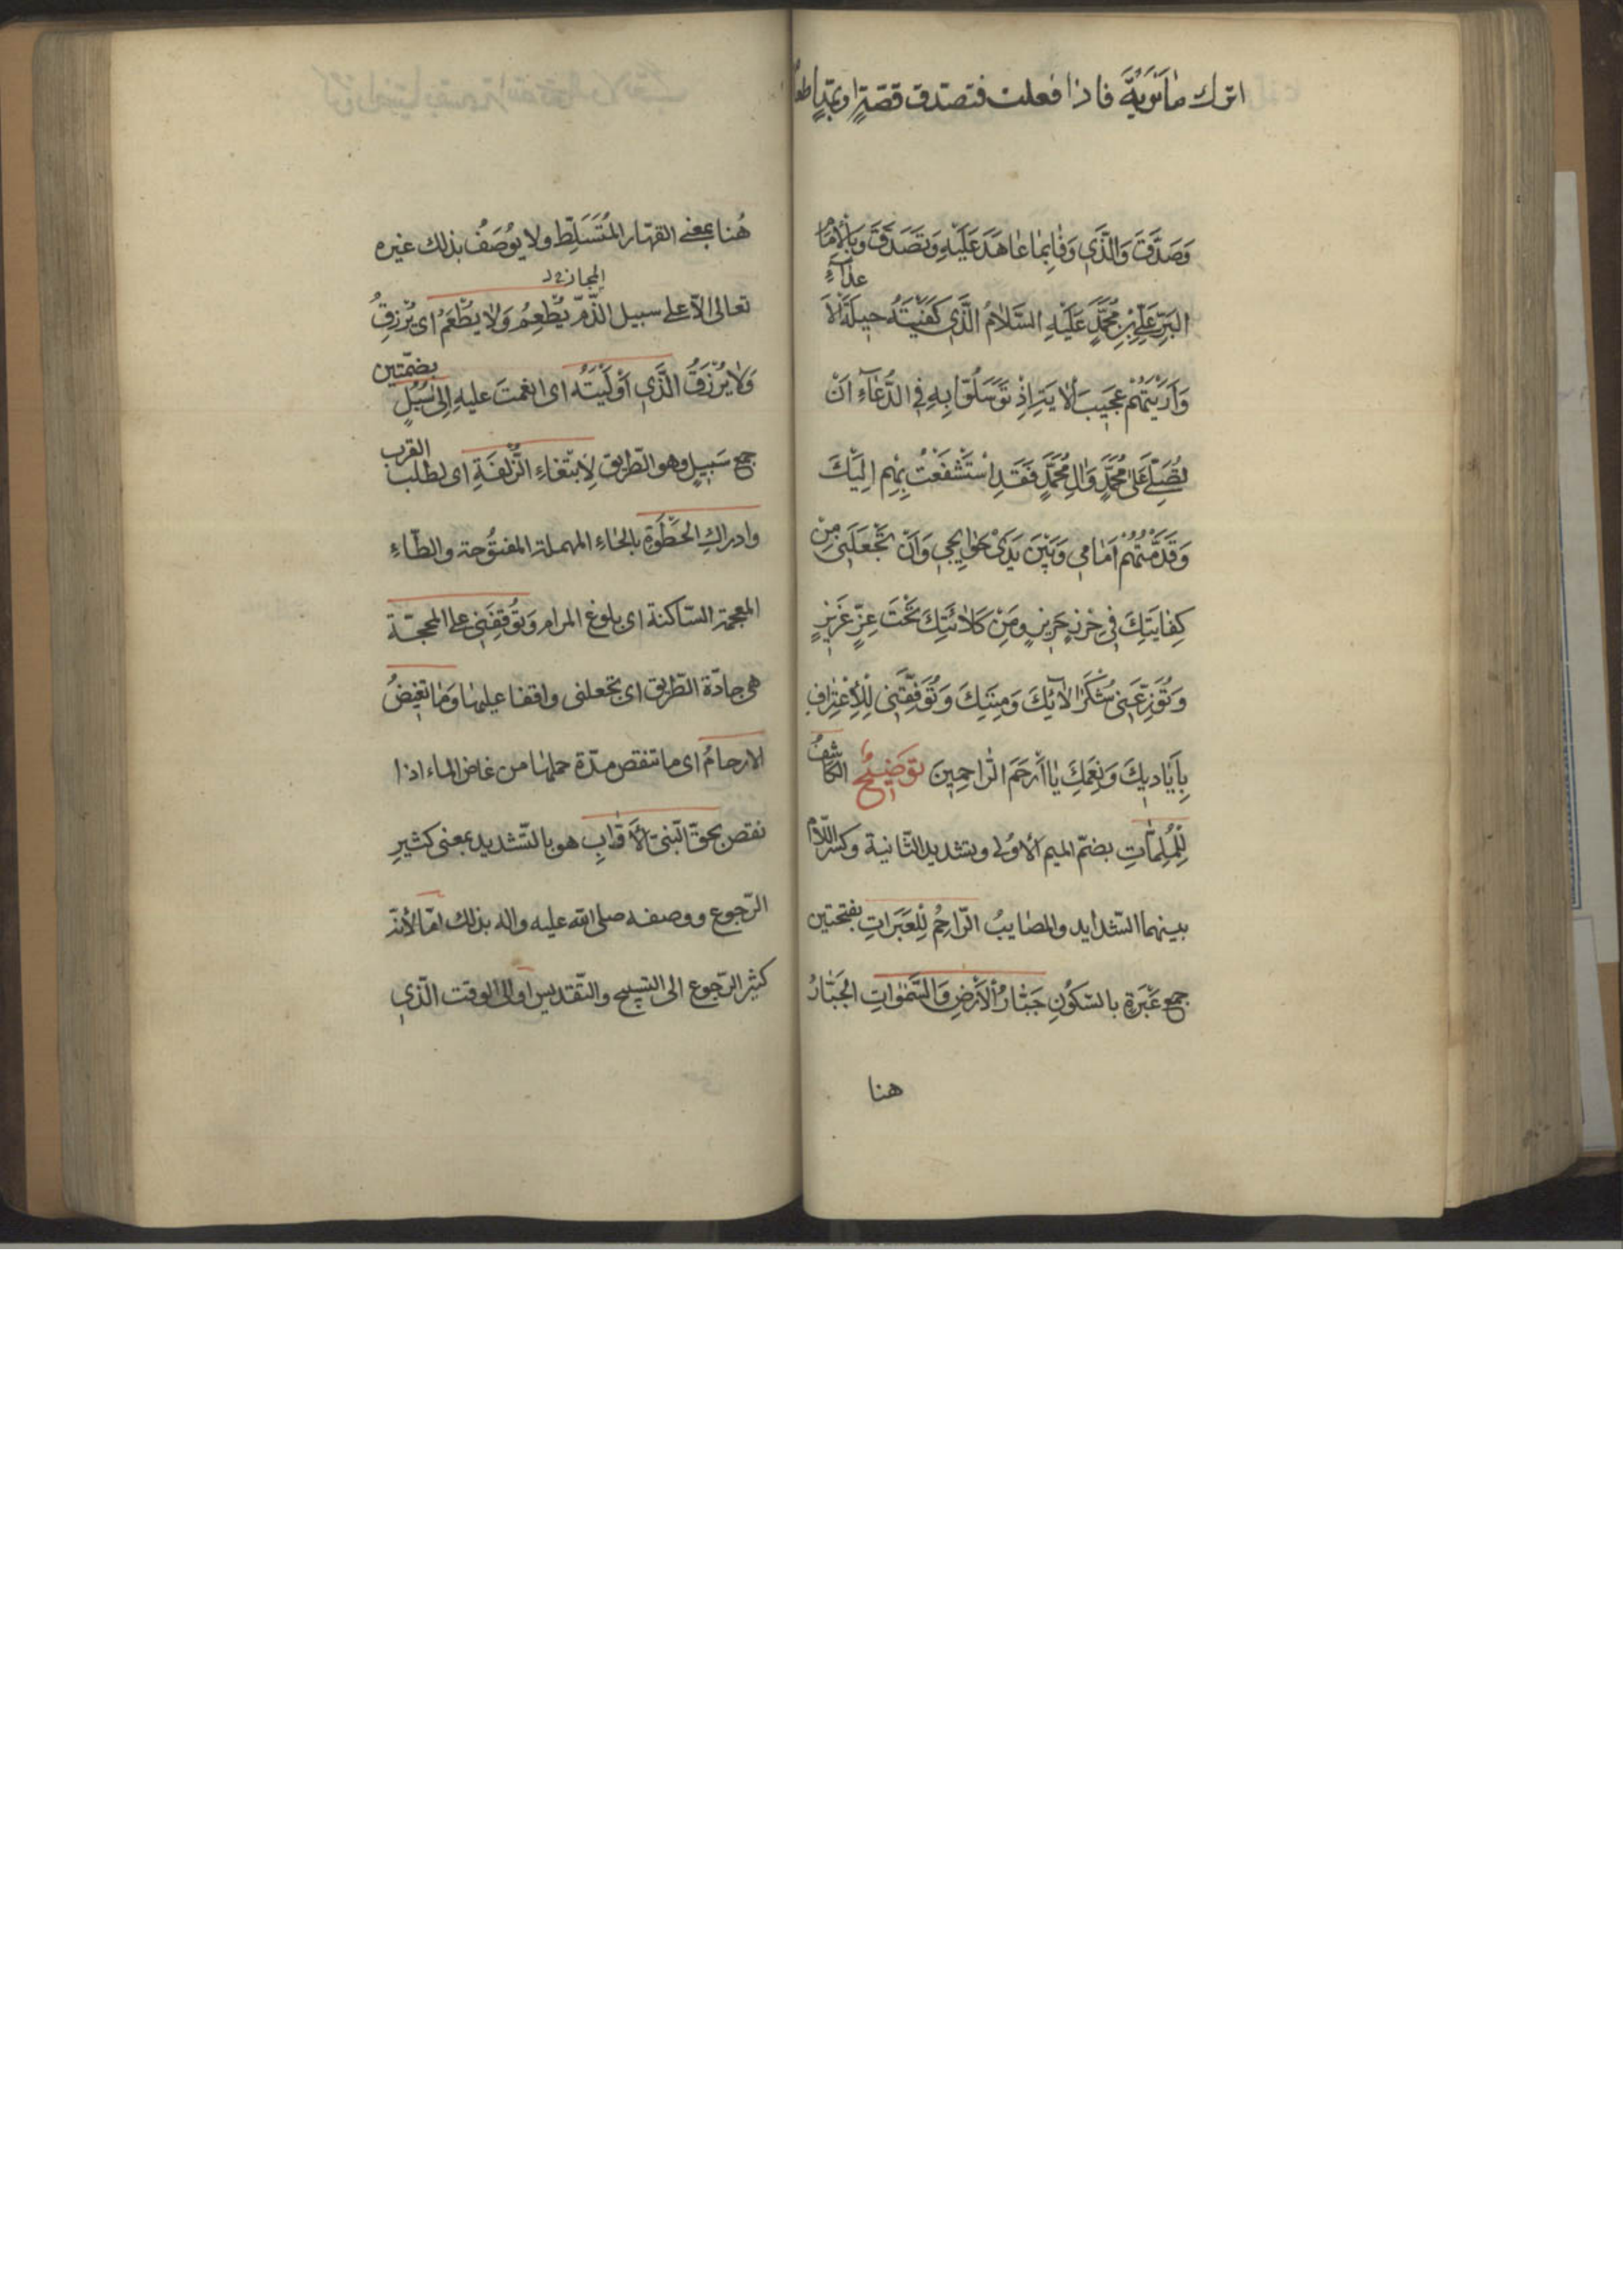 اترك ما نويته فاذا فعلت فتصدق قصة او بمد طعا
وَصَدَّقَ وَالَّذَي وَفٰا بِمٰا عٰاهَدَ عَلَيْهِ وَتَصَدَّقَ وَبِالْاِمٰامِ
البَرِّ عَلِّيِ بْنِ مُحَمَّدٍ عَلَيْهِ السَّلامُ الَّذَي كَفَيْتَهُ حيلَةَ الْاَ
عدآءِ
وَاَرَيْتَهُمْ عَجيبَ الْاٰيَةِ اِذْ تَوَسَّلُوا بِهِ فِي الدُّعٰآءِ اَنْ
تُصَلِّيَ عَلىٰ مُحَمَّدٍ وَاٰلِ مُحَمَّدٍ فَقَدِ اسْتَشْفَعْتُ بِهِمْ اِلَيْكَ
وَقَدَّمْتُهُمْ اَمٰامي وَبَيْنَ يَدَيْ حَوٰايِجي وَاَنْ تَجْعَلَني مِنْ
كِفٰايَتِكَ في حِرْزٍ حَريزٍ وَمِنْ كَلٰائَتِكَ تَحْتَ عِزٍّ عَزيزٍ
وَتُوزِعَني شُكْرَ اٰلٰائِكَ وَمِنَنِكَ وَتُوَفِّقَني لِلْاِعْتِرٰافِ
بِاَيٰاديكَ وَنِعَمِكَ يٰا اَرْحَمَ الرّٰاحِمينَ تَوضيحٌ الكاشفُ
لِلْمُلِمّٰاتِ بضمّ الميم الاولى وتشديد الثّانية وكسر اللّام
بينهما الشّدايد والمصايبُ الرّاحِمُ لِلْعَبَرَاتِ بفتحتين
جمع عَبْرَةٍ بالسّكونِ جَبّٰارُ الْاَرْضِ وَالسَّمٰوٰاتِ الجَبّٰارُ
هنا
هُنا بمعني القهّار المُتَسَلِّط ولا يُوصَفُ بذلك غيره
تعالى الّا على سبيل الذّمّ يُطْعِمُ وَلٰا يُطْعَمُ اى يُرْزِقُ
المجاز
وَلٰا يُرْزَقُ الَّذَي اَوْلَيْتَهُ اى انعمتَ عليهِ اِلىٰ سُبُلٍ بضمّتين
جمع سَبيلٍ وهو الطّريق لِابْتِغٰاءِ الزُّلْفَةِ اى لطلب القرب
وادراكِ الحَظْوَةِ بالحٰاءِ المهملة المفتوحة والظّاءِ
المعجمة السّاكنة اى بلوغ المرام وَتُوقِفَني على المحجّة
هى جادّة الطّريق اى تجعلنى واقفا عليها وَمٰا تَغيضُ
الارحامُ اى ما تنقص مدّة حملها من غاض الماء اذا
نقص بحقّ النّبيّ الْاَوّٰابِ هو بالتّشديد بمعنى كثيرِ
الرّجوع ووصفه صلى الله عليه واله بذلك امّا لأنّه
كثير الرّجوع الى التسبيح والتّقديس او الى الوقت الّذي